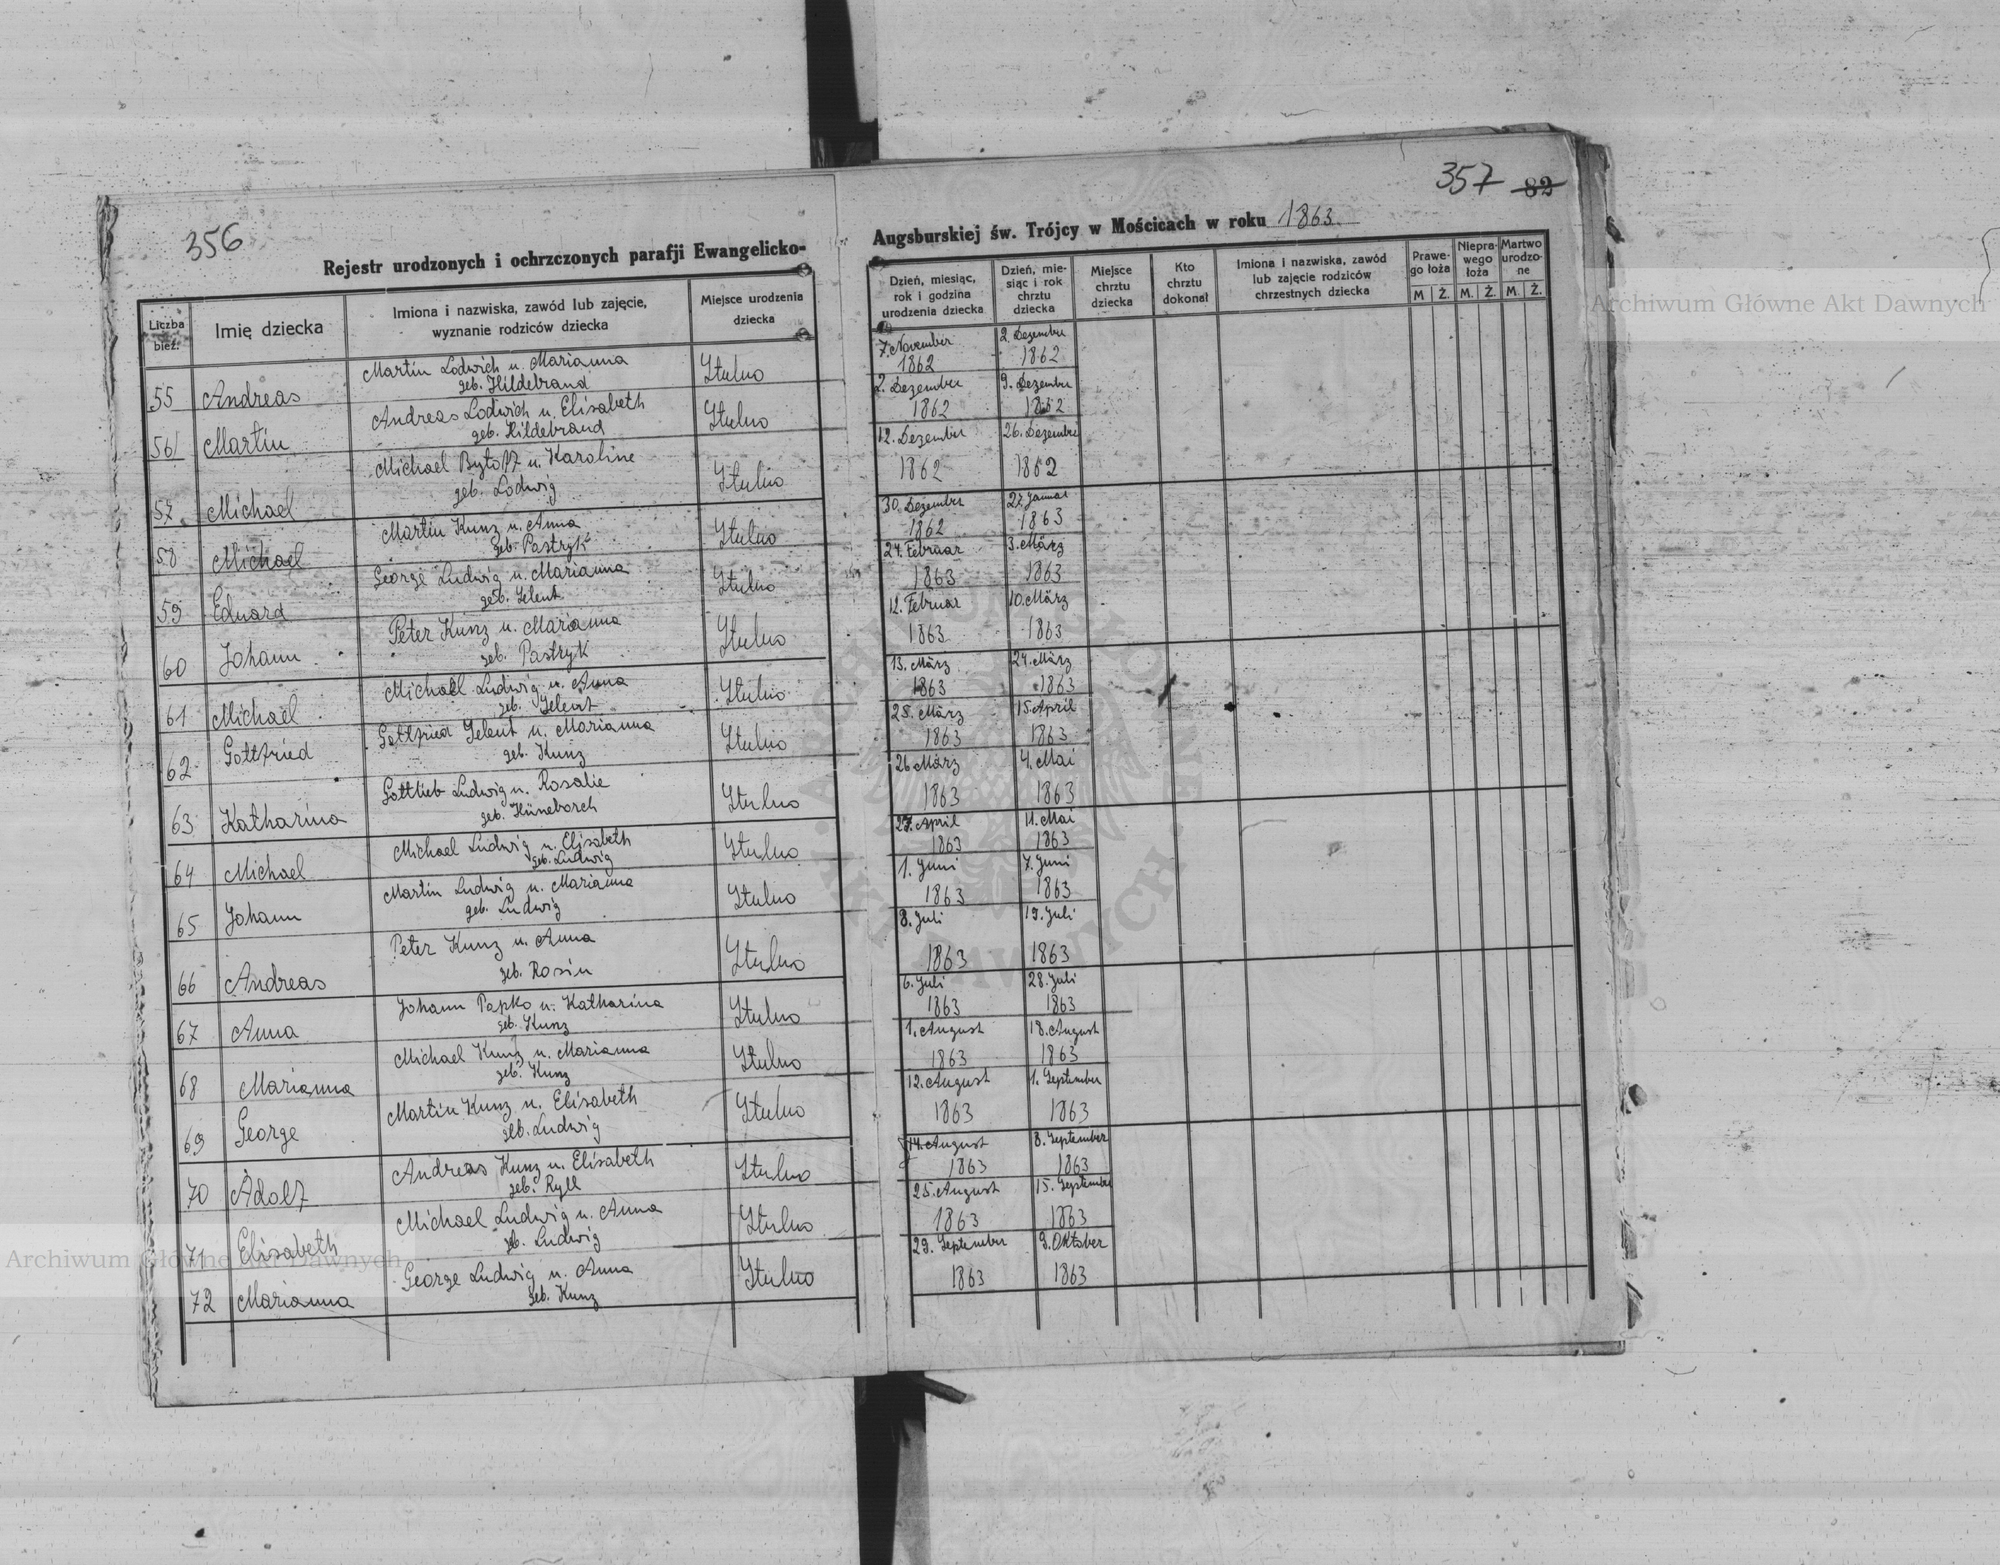 356
357 82
Rejestr urodzonych i ochrzczonych parafji Ewangelicko-
Augsburskiej św. Trójcy w Mościcach w roku 1863
Liczba bież.
Imię dziecka
Imiona i nazwiska, zawód lub zajęcie,
wyznanie rodziców dziecka
Miejsce urodzenia
dziecka
Dzień, miesiąc,
rok i godzina
urodzenia dziecka
Dzień, mie-
siąc i rok
chrztu
dziecka
Miejsce
chrztu
dziecka
Kto
chrztu
dokonał
Imiona i nazwiska, zawód
lub zajęcie rodziców
chrzestnych dziecka
Prawe-
go łoża
Niepra-
wego
łoża
Martwo
urodzo-
ne
M Ż. M. Ż. M. Ż.
55 Andreas Martin Lodwich u. Marianna Stulno 7. November 2. Dezember
geb. Hildebrand 1862 1862
56 Martin Andreas Lodwich u. Elisabeth Stulno 2. Dezember 9. Dezember
geb. Hildebrand 1862 1862
57. Michael Michael Bytoff u. Karoline Stulno 12. Dezember 26. Dezember
geb. Lodwig 1862 1862
58 Michael Martin Kunz u. Anna Stulno 30. Dezember 27. Januar
geb. Pastryk 1862 1863
59 Eduard George Ludwig u. Marianna Stulno 24. Februar 3. März
geb. Selent 1863 1863
60 Johann Peter Kunz u. Marianna Stulno 12. Februar 10. März
geb. Pastryk 1863 1863
61 Michael Michael Ludwig u. Anna Stulno 13. März 24. März
geb. Selent 1863 1863
62. Gottfried Gottfried Selent u. Marianna Stulno 25. März 15. April
geb. Kunz 1863 1863
63 Katharina Gottlieb Ludwig u. Rosalie Stulno 26. März 4. Mai
geb. Hüneborch 1863 1863
64 Michael Michael Ludwig u. Elisabeth Stulno 27. April 11. Mai
geb. Ludwig 1863 1863
65 Johann Martin Ludwig u. Marianna Stulno 1. Juni 7. Juni
geb. Ludwig 1863 1863
66 Andreas Peter Kunz u. Anna Stulno 8. Juli 19. Juli
geb. Rosin 1863 1863
67 Anna Johann Papko u. Katharina Stulno 6. Juli 28. Juli
geb. Kunz 1863 1863
68 Marianna Michael Kunz u. Marianna Stulno 1. August 18. August
geb. Kunz 1863 1863
69 George Martin Kunz u. Elisabeth Stulno 12. August 1. September
geb. Ludwig 1863 1863
70 Adolf Andreas Kunz u. Elisabeth Stulno 14. August 8. September
geb. Ryll 1863 1863
71 Elisabeth Michael Ludwig u. Anna Stulno 25. August 15. September
geb. Ludwig 1863 1863
72 Marianna George Ludwig u. Anna Stulno 29. September 9. Oktober
geb. Kunz 1863 1863
Archiwum Główne Akt Dawnych
Archiwum Główne Akt Dawnych